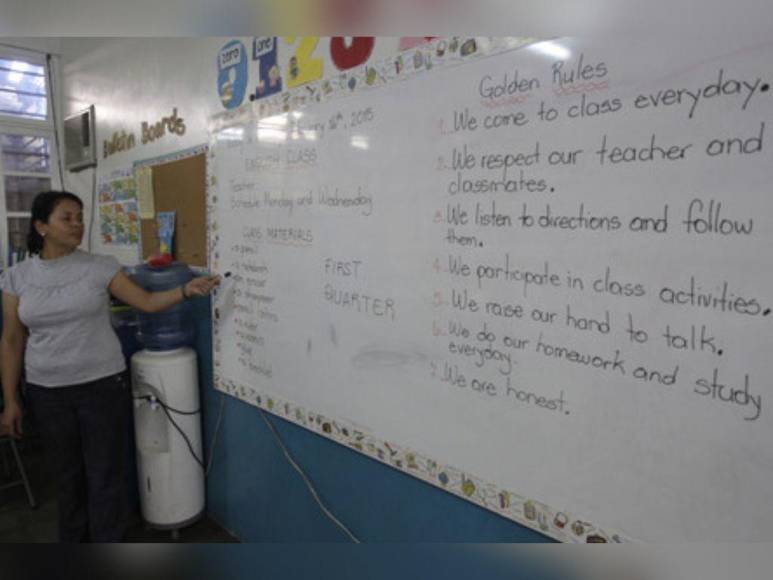 zero
one
2
3
Bulletin Boards
16th, 2015
ENGLISH CLASS
Teacher:
Schedule Monday and Wednesday
CLASS MATERIALS
FIRST
QUARTER
Golden Rules
1. We come to class everyday.
2. We respect our teacher and
classmates.
3. We listen to directions and follow
them.
4. We participate in class activities.
5. We raise our hand to talk.
6. We do our homework and study
everyday.
7. We are honest.